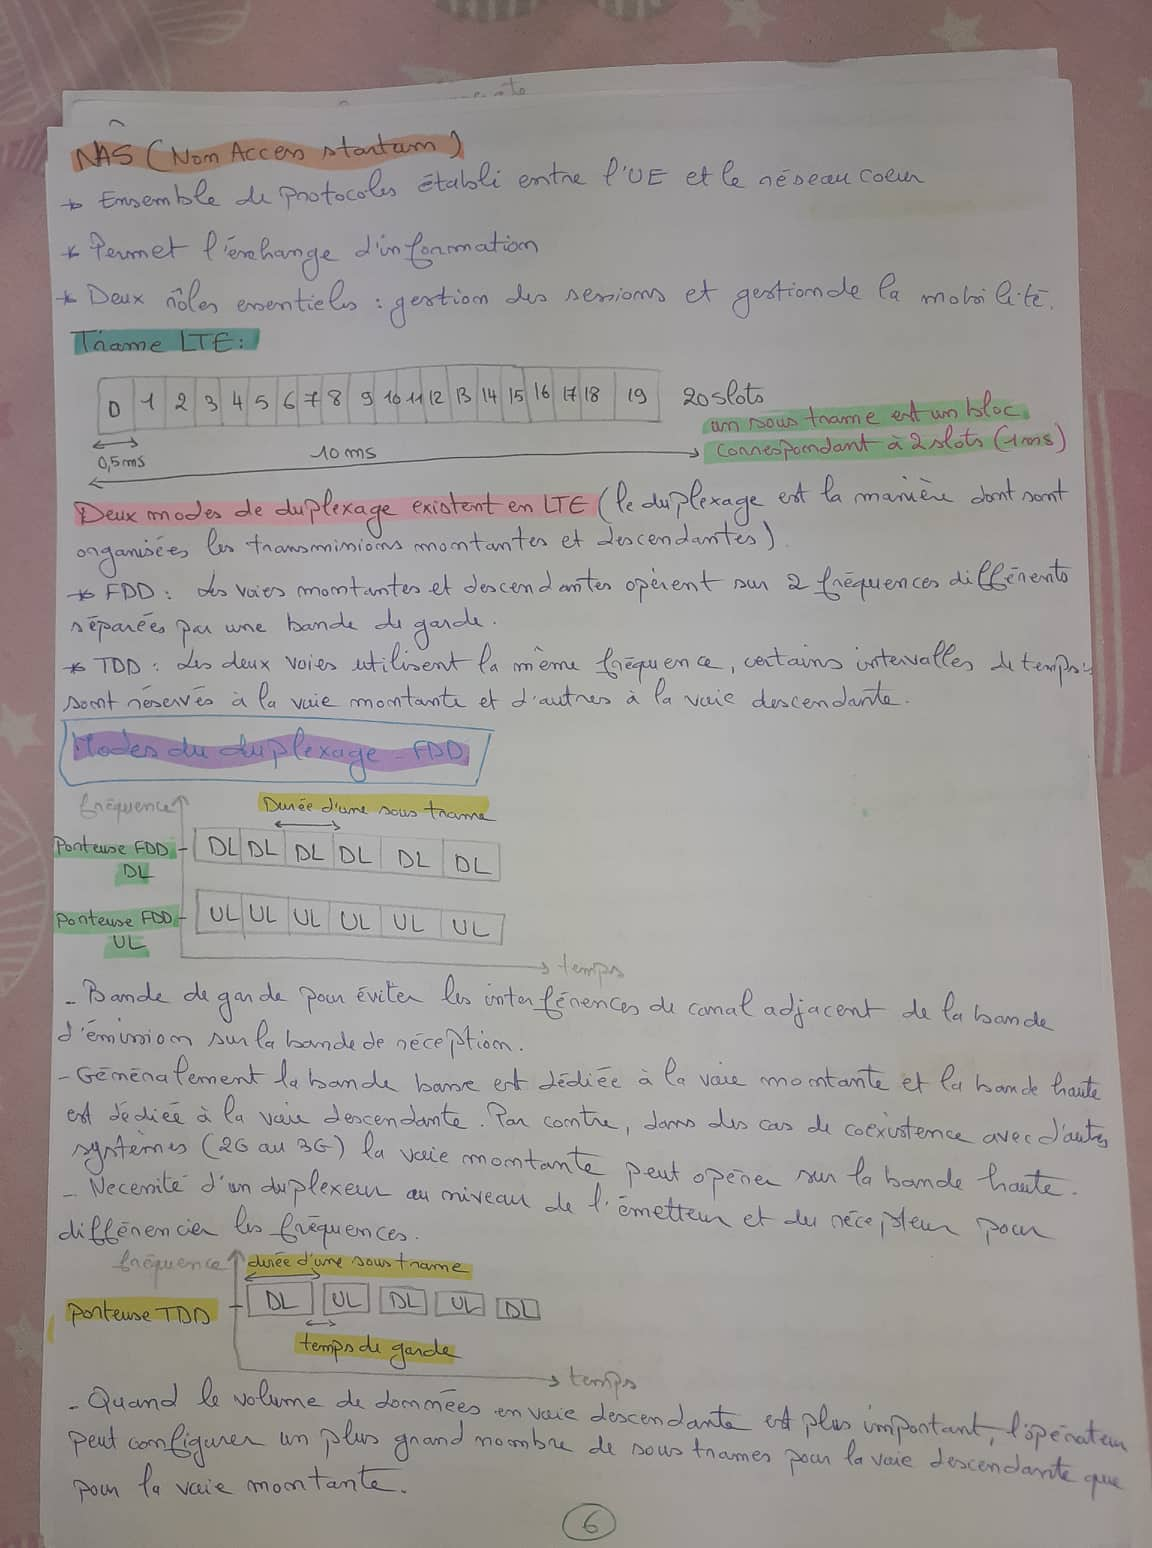 NAS (Nom Access startum)
* Ensemble de protocoles établi entre l'UE et le réseau coeur
* Permet l'échange d'information
* Deux rôles essentiels : gestion des sessions et gestion de la mobilité.
Trame LTE:
0 1 2 3 4 5 6 7 8 9 10 11 12 13 14 15 16 17 18 19 20 slots
un sous trame est un bloc
correspondant à 2 slots (1ms)
0,5ms 10 ms
Deux modes de duplexage existent en LTE (le duplexage est la manière dont sont
organisées les transmissions montantes et descendantes).
* FDD : les voies montantes et descendantes opèrent sur 2 fréquences différents
séparées par une bande de garde.
* TDD : les deux voies utilisent la même fréquence, certains intervalles de temps
sont réservés à la voie montante et d'autres à la voie descendante.
Modes du duplexage - FDD
fréquence Durée d'une sous trame
Porteuse FDD DL DL DL DL DL DL
DL
Porteuse FDD UL UL UL UL UL UL
UL
temps
- Bande de garde pour éviter les interférences de canal adjacent de la bande
d'émission sur la bande de réception.
- Génénalement la bande basse est dédiée à la voie montante et la bande haute
est dédiée à la voie descendante. Par contre, dans des cas de coexistence avec d'autres
systèmes (2G au 3G) la voie montante peut opérer sur la bande haute.
- Necessité d'un duplexeur au niveau de l'émetteur et du récepteur pour
différencier les fréquences.
fréquence durée d'une sous trame
Porteuse TDD DL UL DL UL DL
temps de garde
temps
- Quand le volume de données en voie descendante est plus important, l'opérateur
peut configurer un plus grand nombre de sous trames pour la voie descendante que
pour la voie montante.
6